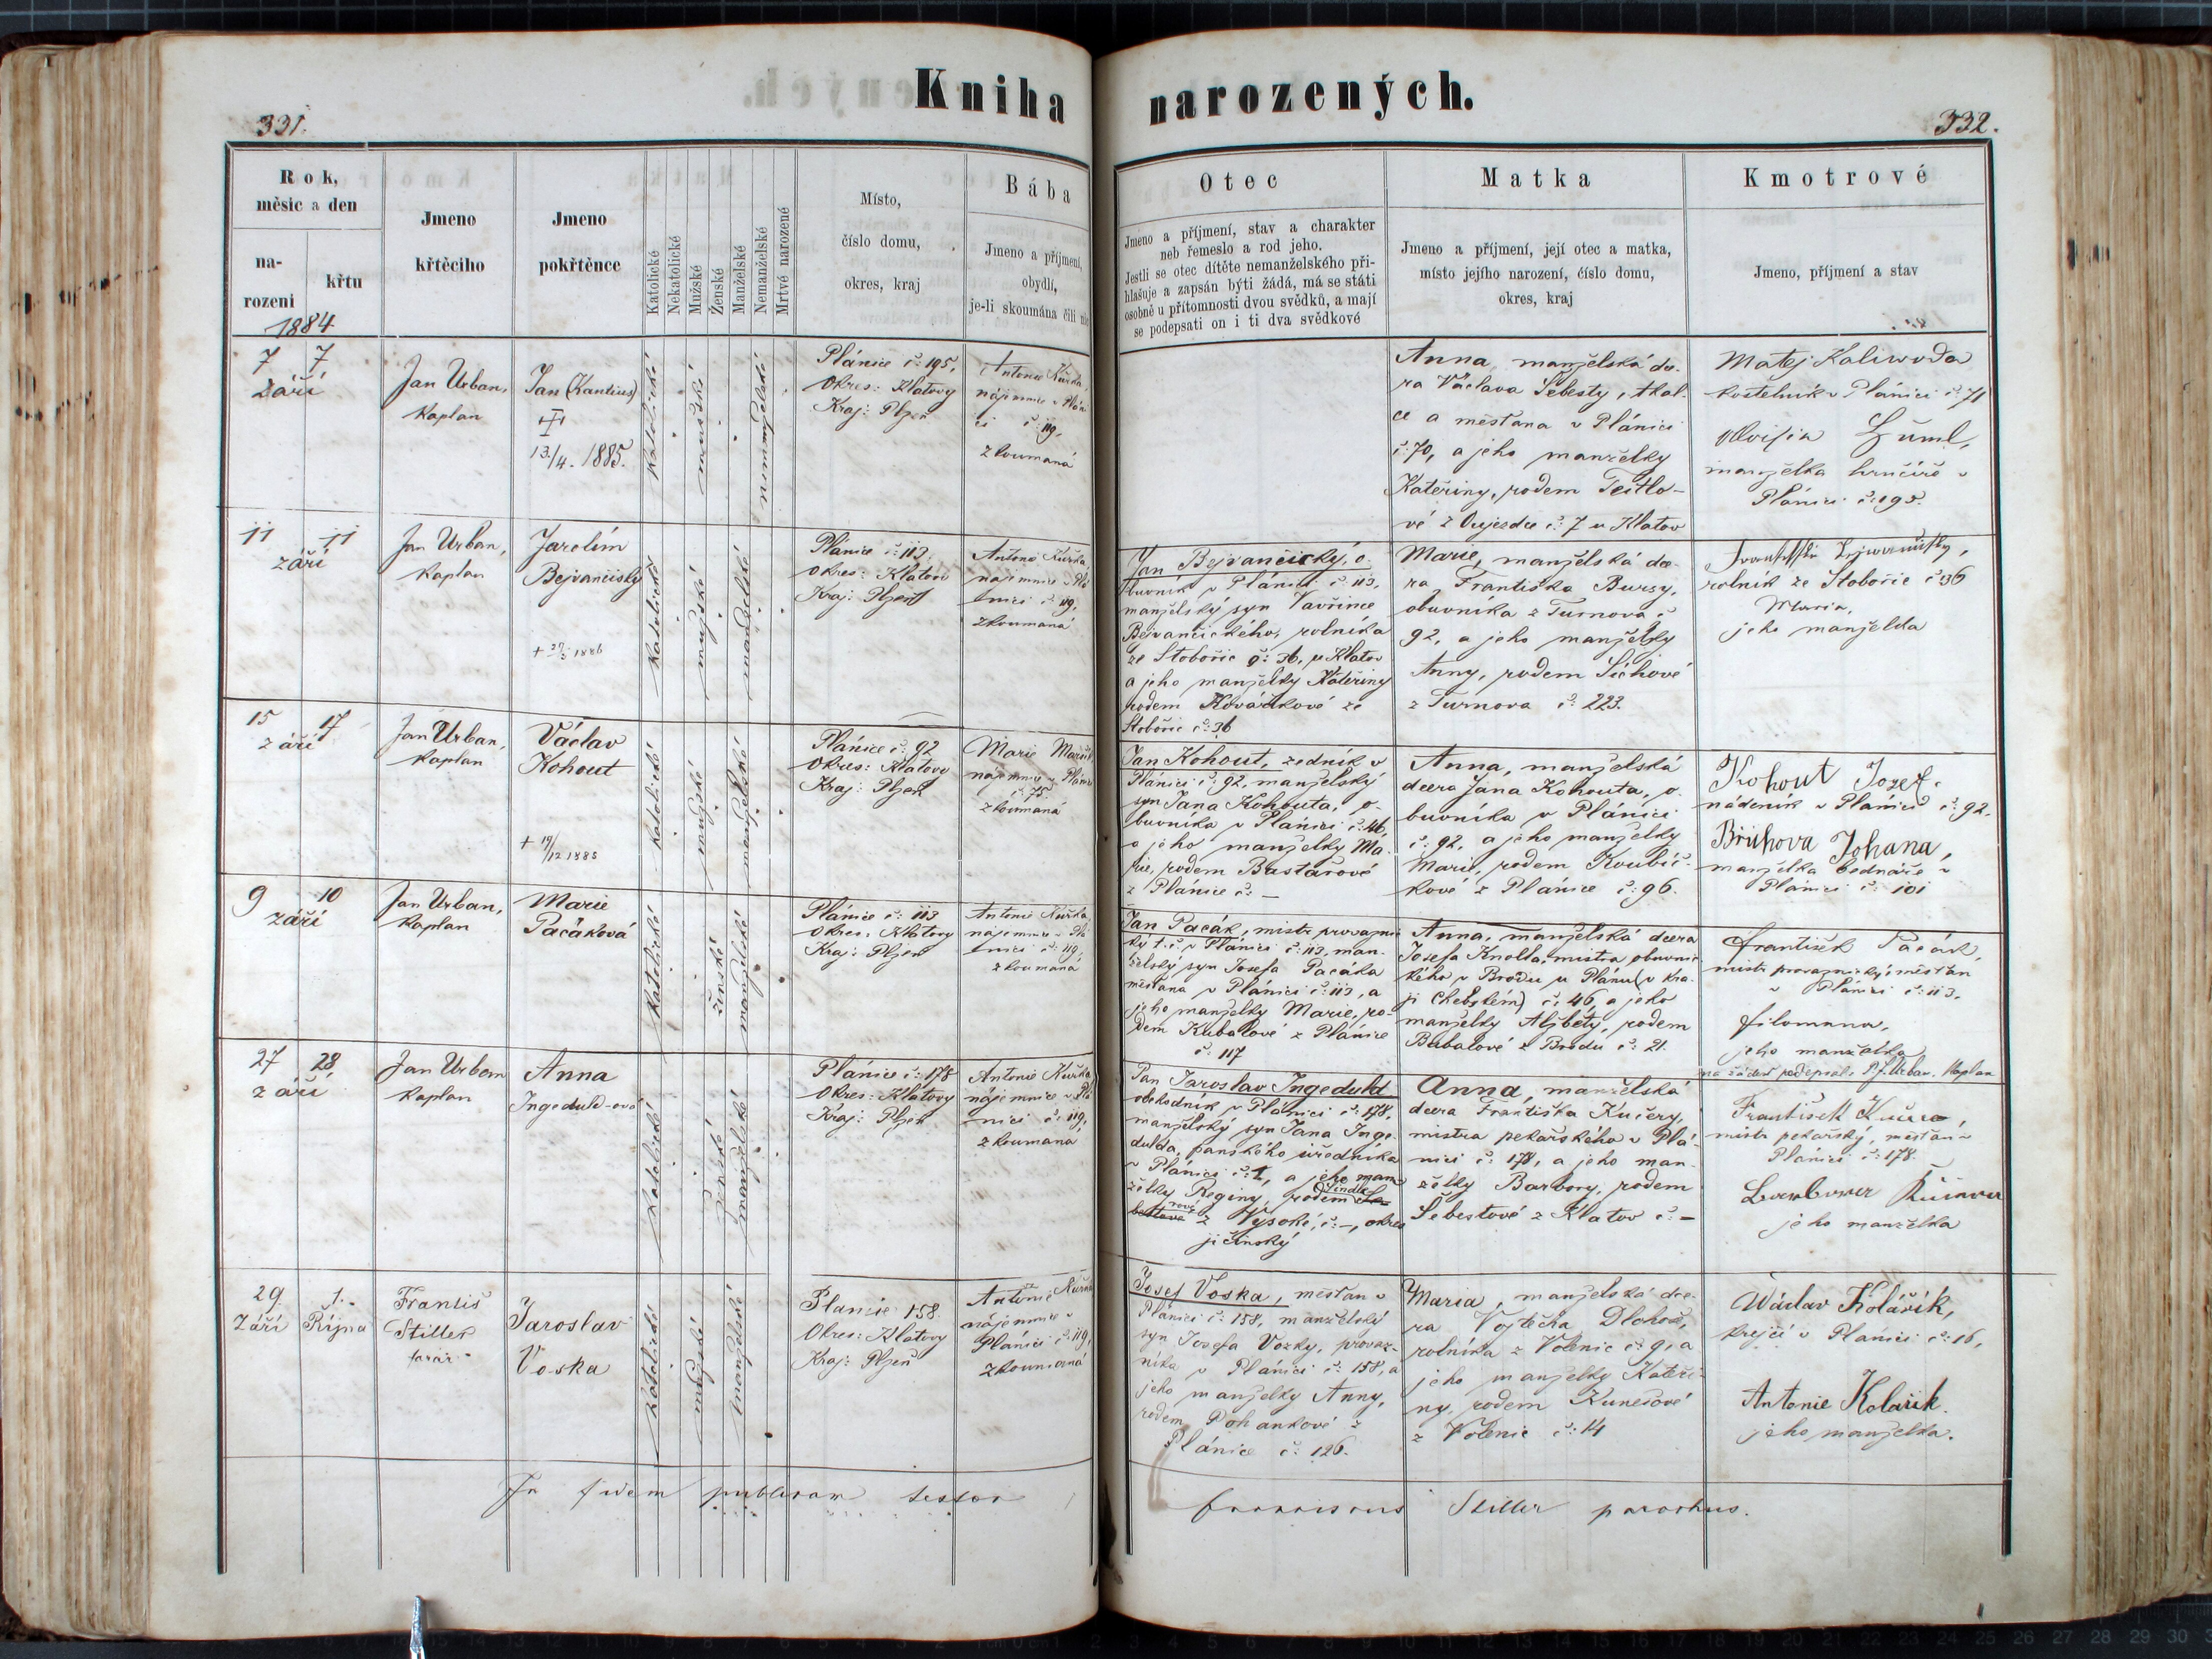 Kniha narozených.
331.
332.
Rok,
měsíc a den
na-
rození
křtu
1884
Jmeno
křtěcího
Jmeno
pokřtěnce
Katolické
Nekatolické
Mužské
Ženské
Manželské
Nemanželské
Mrtvé narozené
Místo,
číslo domu,
okres, kraj
Bába
Jmeno a příjmení,
obydlí,
je-li skoumána čili
Otec
Jmeno a příjmení, stav a charakter
neb řemeslo a rod jeho.
Jestli se otec dítěte nemanželského při-
hlašuje a zapsán býti žádá, má se státi
osobně u přítomnosti dvou svědků, a mají
se podepsati on i ti dva svědkové
Matka
Jmeno a příjmení, její otec a matka,
místo jejího narození, číslo domu,
okres, kraj
Kmotrové
Jmeno, příjmení a stav
7 7
září
Jan Urban,
kaplan
Jan (Kantius)
13/4. 1885.
katolické
mužské
nemanželské
Plánice č: 195,
Okres: Klatovy
Kraj: Plzeň
Antonie Kůrka
nájemnice v Plán
ici č: 119,
zkoumaná
Anna, manželská dce-
ra Václava Šebesty, tkal-
ce a měšťana v Plánici
č: 70, a jeho manželky
Kateřiny, rodem Teitlo-
vé z Oujezdce č: 7 u Klatov
Matej Kaliwoda
kostelník v Plánici č: 71
Žuml,
manželka hrnčíře v
Plánici č: 195.
11 11
září
Jan Urban,
kaplan
Jarolím
Bejvančický
+ 27/3 1886
katolické
mužské
manželské
Plánice č: 113.
Okres: Klatovy
Kraj: Plzeň
Antonie Kůrka,
nájemnice v Plá
nici č: 119,
zkoumaná
Jan Bejvančický, o-
buvník v Plánici č: 113,
manželský syn Vavřince
Bejvančického, rolníka
ze Stobořic č: 36, u Klatov
a jeho manželky Kateřiny
rodem Kovaříkové ze
Stobořic č: 36
Marie, manželská dce-
ra Františka Bursy,
obuvníka z Turnova č
92, a jeho manželky
Anny, rodem Síchové
z Turnova č: 223.
rolník ze Stobořic č 36
Maria,
jeho manželka
15 17
září
Jan Urban,
kaplan
Václav
Kohout
+ 19/12 1885
katolické
mužské
manželské
Plánice č: 92
Okres: Klatovy
Kraj: Plzeň
Marie
nájemnice v Plánici
č: 75.
zkoumaná
Jan Kohout, zedník v
Plánici č: 92, manželský
syn Jana Kohouta, o-
buvníka v Plánici č: 46,
a jeho manželky Ma-
rie, rodem Bastařové
z Plánice č: —
Anna, manželská
dcera Jana Kohouta, o-
buvníka v Plánici
č: 92, a jeho manželky
Marie, rodem Koubíč-
kové z Plánice č: 96.
Kohout Josef.
nádeník v Plánici č: 92.
Brůhova Johana,
manželka bednáře v
Plánici č: 101
9 10
září
Jan Urban,
kaplan
Marie
Pacáková
katolické
ženské
manželské
Plánice č: 113
Okres: Klatovy
Kraj: Plzeň
Antonie Kůrka,
nájemnice v Plá
nici č: 119,
zkoumaná
Jan Pacák, mistr provazni
cký t.č. v Plánici č: 113, man-
želský syn Josefa Pacáka
měšťana v Plánici č: 113, a
jeho manželky Marie, ro-
dem Kubalové z Plánice
č: 117
Anna, manželská dcera
Josefa Knolla, mistra obuvnic
kého v Brodu u Plánu (v kra-
ji Chebském) č: 46, a jeho
manželky Alžběty, rodem
Babalové z Brodu č: 21.
František Pacák,
mistr provaznický, měšťan
v Plánici č: 113.
filomena,
jeho manželka
na žádost podepsal: P. J. Urban, kaplan
27 28
září
Jan Urban
kaplan
Anna
Ingeduld-ová
katolické
ženské
manželské
Plánice č: 178
Okres: Klatovy
Kraj: Plzeň
Antonie Kůrka
nájemnice v Plá
nici č: 119,
zkoumaná
Pan Jaroslav Ingeduld
obchodník v Plánici č: 178,
manželský syn Jana Inge-
dulda, panského úředníka
v Plánici č: 1, a jeho man
želky Reginy, rodem Šindle-
rové z Vysoké, č: —, okres
jičínský
Anna, manželská
dcera Františka Kučery,
mistra pekařského v Plá-
nici č: 178, a jeho man-
želky Barbory, rodem
Šebestové z Klatov č: —
František
mistr pekařský, měšťan v
Plánici č: 178.
jeho manželka
29 1.
Září Října
Františ
Stiller
farář
Jaroslav
Voska
katolické
mužské
manželské
Plánice 158.
Okres: Klatovy
Kraj: Plzeň
Antonie Kůrka
nájemnice v
Plánici č: 119,
zkoumaná
Josef Voska, měšťan v
Plánici č: 158, manželský
syn Josefa Vosky, provaz-
níka v Plánici č: 158, a
jeho manželky Anny,
rodem Pohankové z
Plánice č: 126.
Maria, manželská dce-
ra Vojtěcha
rolníka z Volenic č: 9, a
jeho manželky Kateři-
ny, rodem Kunešové
z Volenic č: 14
Wáclav Kolářík,
krejčí v Plánici č: 16,
Antonie Kolařík.
jeho manželka.
In fidem publicam testor
franciscus Stiller parochus.